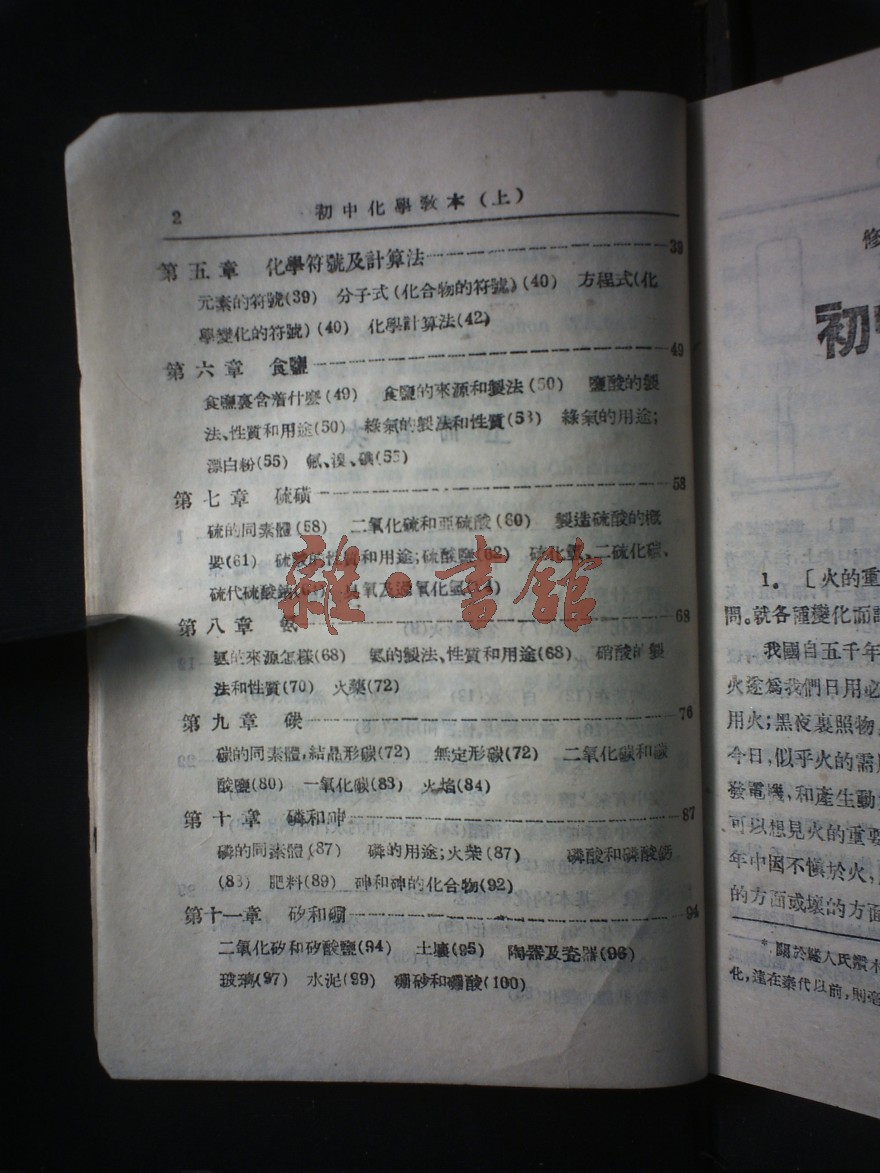 2 初中化學敎本(上)
第五章 化學符號及計算法 39
元素的符號(39) 分子式(化合物的符號)(40) 方程式(化
學變化的符號)(40) 化學計算法(42)
第六章 食鹽 49
食鹽裏含着什麽(49) 食鹽的來源和製法(50) 鹽酸的製
法、性質和用途(50) 綠氣的製法和性質(53) 綠氣的用途;
漂白粉(55) 氟、溴、碘(55)
第七章 硫磺 58
硫的同素體(58) 二氧化硫和亞硫酸(60) 製造硫酸的概
要(61) 硫酸的性質和用途;硫酸鹽(62) 硫化氫、二硫化碳、
硫代硫酸鈉 臭氧及過氧化氫
雜·書館
第八章 68
氨的來源怎樣(68) 氨的製法、性質和用途(68) 硝酸的製
法和性質(70) 火藥(72)
第九章 碳 76
碳的同素體,結晶形碳(72) 無定形碳(72) 二氧化碳和碳
酸鹽(80) 一氧化碳(83) 火焰(84)
第十章 磷和砷 87
磷的同素體(87) 磷的用途;火柴(87) 磷酸和磷酸鈣
(88) 肥料(89) 砷和砷的化合物(92)
第十一章 矽和硼 94
二氧化矽和矽酸鹽(94) 土壤(95) 陶器及瓷器(96)
玻璃(97) 水泥(99) 硼砂和硼酸(100)
修
初
1.〔火的重
問。就各種變化而
我國自五千年
火遂爲我們日用必
用火;黑夜裏照物,
今日,似乎火的需
發電機,和產生動
可以想見火的重要
年中因不愼於火,
的方面或壞的方面
*關於燧人氏鑽木
化,遠在秦代以前,則